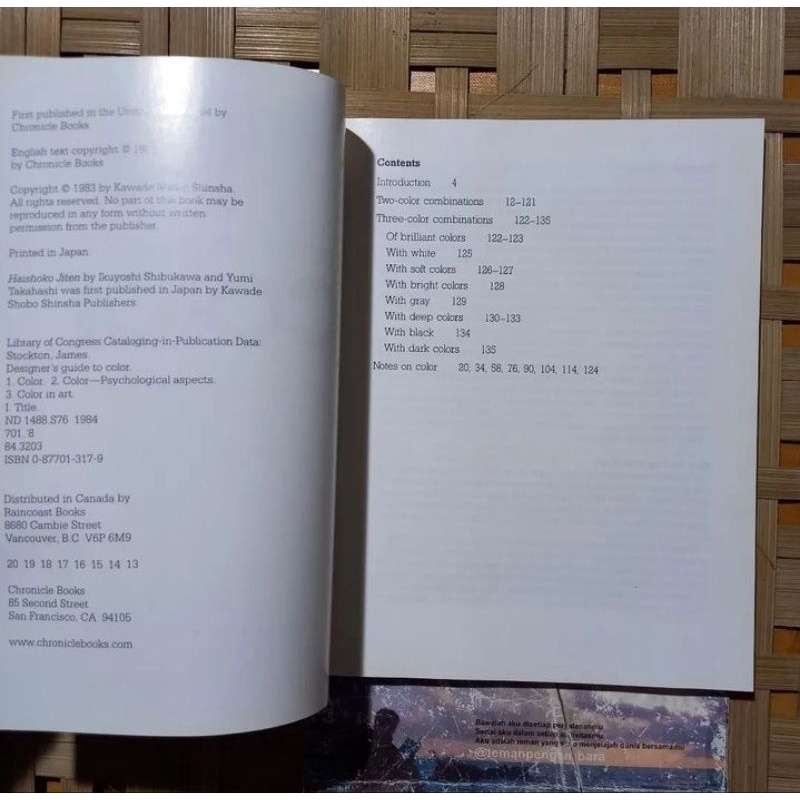 First published in the 84 by
Chronicle Books
English text copyright ©
by Chronicle Books
Copyright © 1983 by Kawade Shinsha.
All rights reserved. No part of this book may be
reproduced in any form without written
permission from the publisher.
Printed in Japan.
Haishoko Jiten by Ikuyoshi Shibukawa and Yumi
Takahashi was first published in Japan by Kawade
Shobo Shinsha Publishers.
Library of Congress Cataloging-in-Publication Data:
Stockton, James.
Designer's guide to color.
1. Color. 2. Color—Psychological aspects.
3. Color in art.
I. Title.
ND 1488.S76 1984
701.'8
84.3203
ISBN 0-87701-317-9
Distributed in Canada by
Raincoast Books
8680 Cambie Street
Vancouver, B.C V6P 6M9
20 19 18 17 16 15 14 13
Chronicle Books
85 Second Street
San Francisco, CA 94105
www.chroniclebooks.com
Contents
Introduction 4
Two-color combinations 12–121
Three-color combinations 122–135
Of brilliant colors 122–123
With white 125
With soft colors 126–127
With bright colors 128
With gray 129
With deep colors 130–133
With black 134
With dark colors 135
Notes on color 20, 34, 58, 76, 90, 104, 114, 124
Bawalah aku disetiap
aku dalam setiap
Aku adalah teman yang menjelajah dunia bersamamu